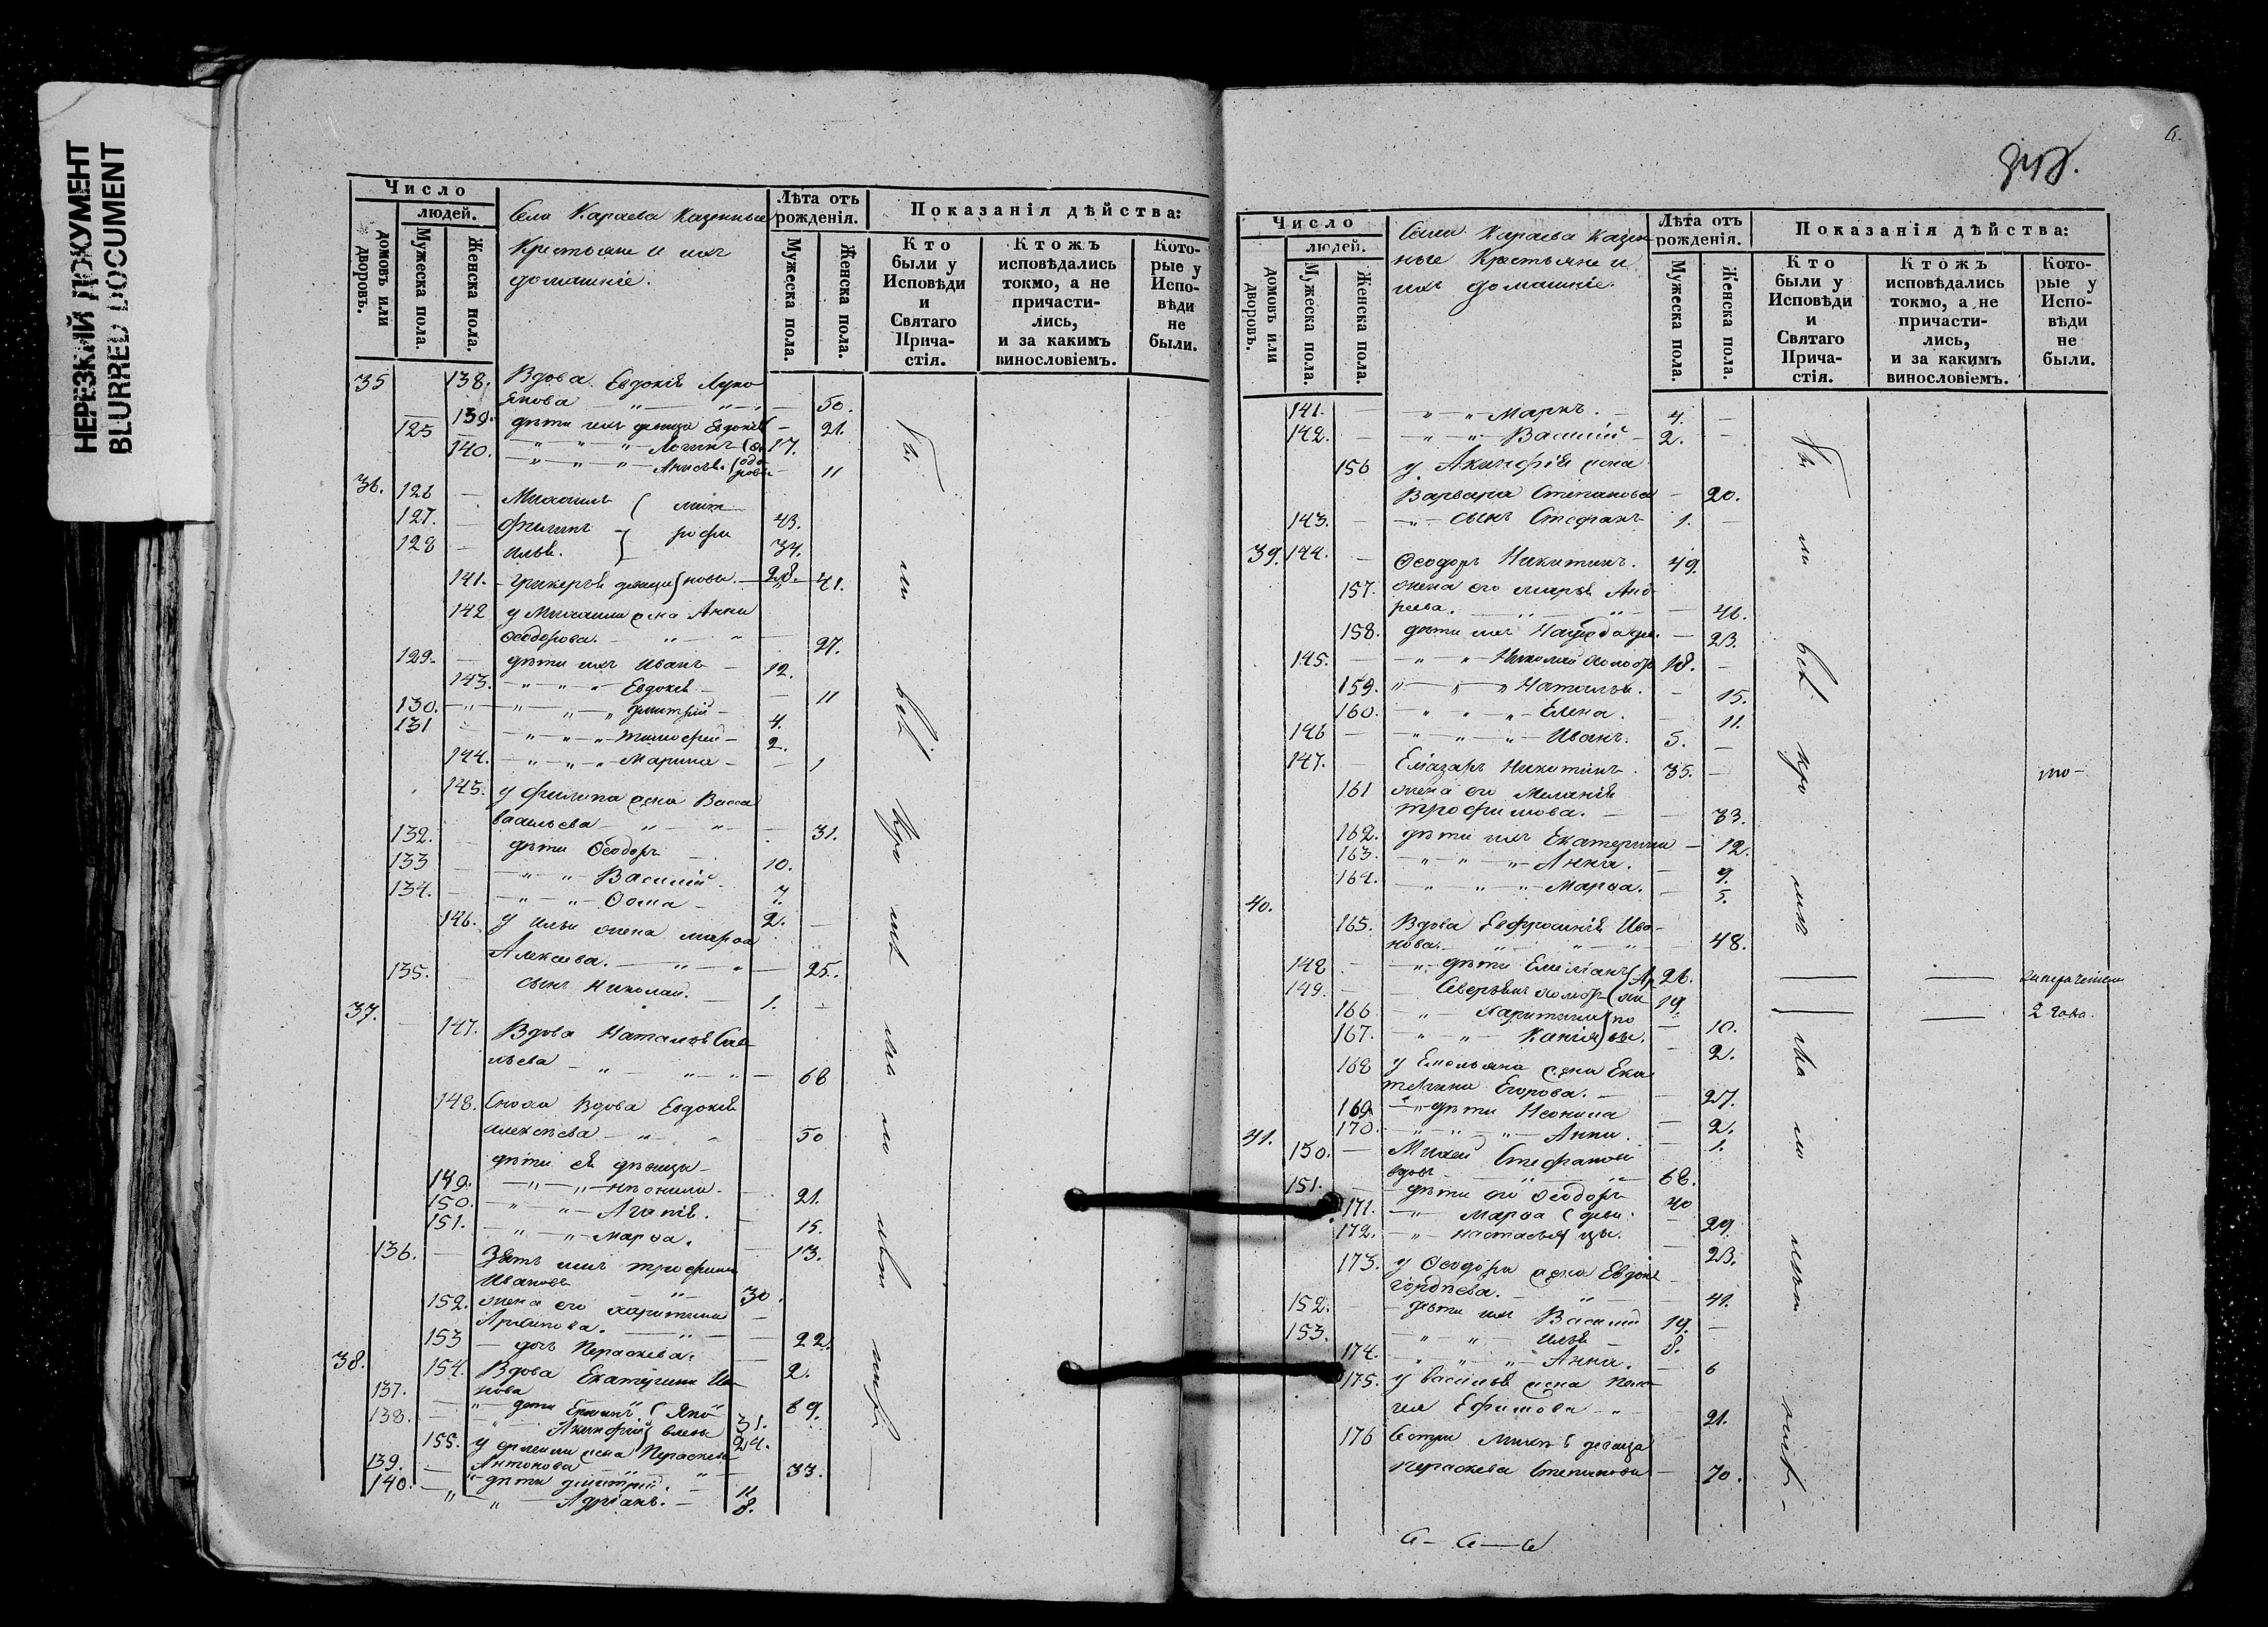 НЕРЕЗКИЙ ДОКУМЕНТ
BLURRED DOCUMENT
Число
людей.
домовъ или дворовъ.
Мужеска пола.
Женска пола.
Села Караева Казенные
Крестьяне и ихъ
домашніе.
Лѣта отъ рожденія.
Мужеска пола.
Женска пола.
Показанія дѣйства:
Кто были у Исповѣди и Святаго Прича- стія.
Ктожъ исповѣдались токмо, а не причасти- лись, и за какимъ винословіемъ.
Кото- рые у Испо- вѣди не были.
35 138. Вдова Евдокія Луко
янова 50.
139. дѣти ихъ девица Евдокія 21.
125 Логинъ 17.
140. Анисья 11
36. 126 Михаилъ мит 43.
127. Филиппъ рофа 34.
128 Илья. 28.
141. Гликерія девица новы. 41.
142 у Михаила жена Анна
Ѳеодорова. 27.
129. дѣти ихъ Иванъ 12.
143. Евдокія 11
130. Дмитрій 4.
131 Тимофей 2.
144. Марина 1
145. у Филипа жена Васса
Васильева 31.
132. дѣти Ѳеодоръ 10.
133 Василій 7.
134. Ѳома 2.
146. у Ильи жена Марѳа
Алексеева. 25.
135. сынъ Николай. 1.
37. 147. Вдова Наталія Сав
ильева 66
148. Сноха Вдова Евдокія
Алексѣева 50
дѣти ея дѣвицы
149. Неонила 21.
150. Агапія. 15.
151. Марѳа. 13.
136. Зять ихъ Трофимъ
Ивановъ 30.
152. жена его Харитина
Архипова. 22.
153 дочь Параскева. 2.
38. 154. Вдова Екатерина Ива
нова 69.
137. дѣти Ермилъ Яко 31.
138. Акинфій влевы 24.
155. у Ермила жена Параскева
Антонова 33.
139. дѣти Дмитрій. 11
140. Адріанъ. 8.
6.
Число
людей.
домовъ или дворовъ.
Мужеска пола.
Женска пола.
Села Караева Казен
ные Крестьяне и
ихъ домашніе.
Лѣта отъ рожденія.
Мужеска пола.
Женска пола.
Показанія дѣйства:
Кто были у Исповѣди и Святаго Прича- стія.
Ктожъ исповѣдались токмо, а не причасти- лись, и за какимъ винословіемъ.
Кото- рые у Испо- вѣди не были.
141. Маркъ. 4.
142. Василій 2.
156 у Акинфія жена
Варвара Степанова 20.
143. сынъ Стефанъ 1.
39. 144. Ѳеодоръ Никитинъ. 49.
157. жена его Марья Анд
реева. 46.
158. дѣти ихъ 23.
145. Николай холостъ 18.
159. Наталья. 15.
160. Елена. 11.
146 Иванъ. 5.
147. Елазаръ Никитинъ. 35.
161 жена его Меланія
Трофимова. 33.
162. дѣти ихъ Екатерина 12.
163. Анна. 9.
164. Марѳа. 5.
40.
165. Вдова Евфросинія Ива
нова. 48.
148 дѣти Емеліанъ 26.
149. холостъ 19.
2 года.
166 Харитина 10.
167. 2.
168 у Емельяна жена Ека
терина Егорова. 27.
169 дѣти Неонила 2.
170. Анна. 1.
41. 150. Михей Стефановъ
вдовъ 68.
151. дѣти его Ѳеодоръ 40
171. Марѳа деви 29.
172. Настасья цы. 23.
173. у Ѳеодора жена Евдокія
Гордѣева. 41.
152. дѣти ихъ Василій 19.
153. Илья 8.
174. Анна. 6
175. у Василья жена Пела
гея Ефимова 21.
176 Сестра Михея девица
Параскева Степанова 70.